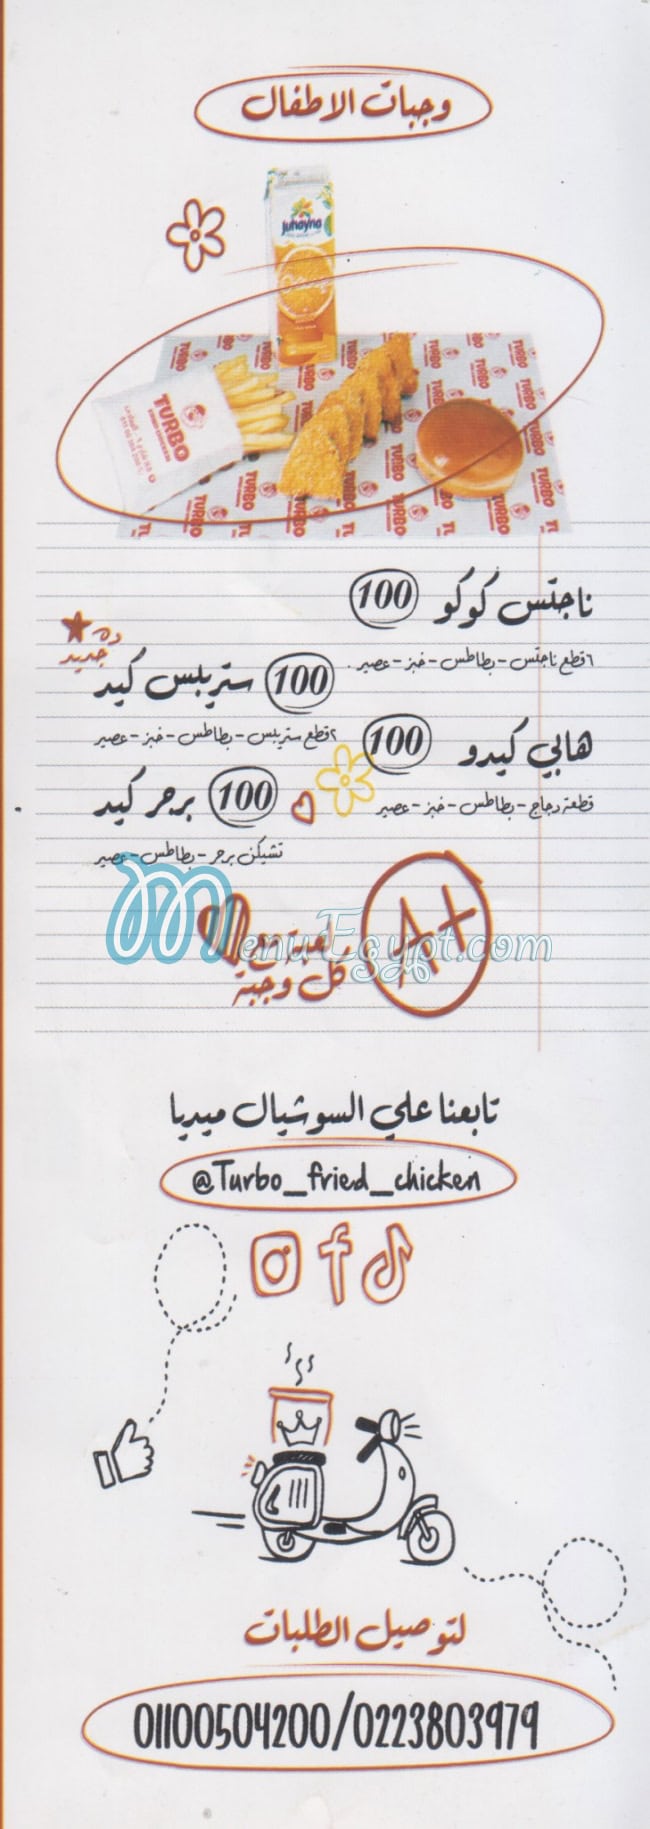 وجبات الاطفال
Juhayna
TURBO
ناجتس كوكو 100
٦ قطع ناجتس - بطاطس - خبز - عصير.
ده جديد
ستربس كيد 100
٢ قطع ستربس - بطاطس - خبز - عصير
هابي كيدو 100
قطعة دجاج - بطاطس - خبز - عصير
برجر كيد 100
تشيكن برجر - بطاطس - عصير
A+
لعبة مع
كل وجبة
MenuEgypt.com
تابعنا علي السوشيال ميديا
@Turbo_fried_chicken
لتوصيل الطلبات
01100504200/0223803979